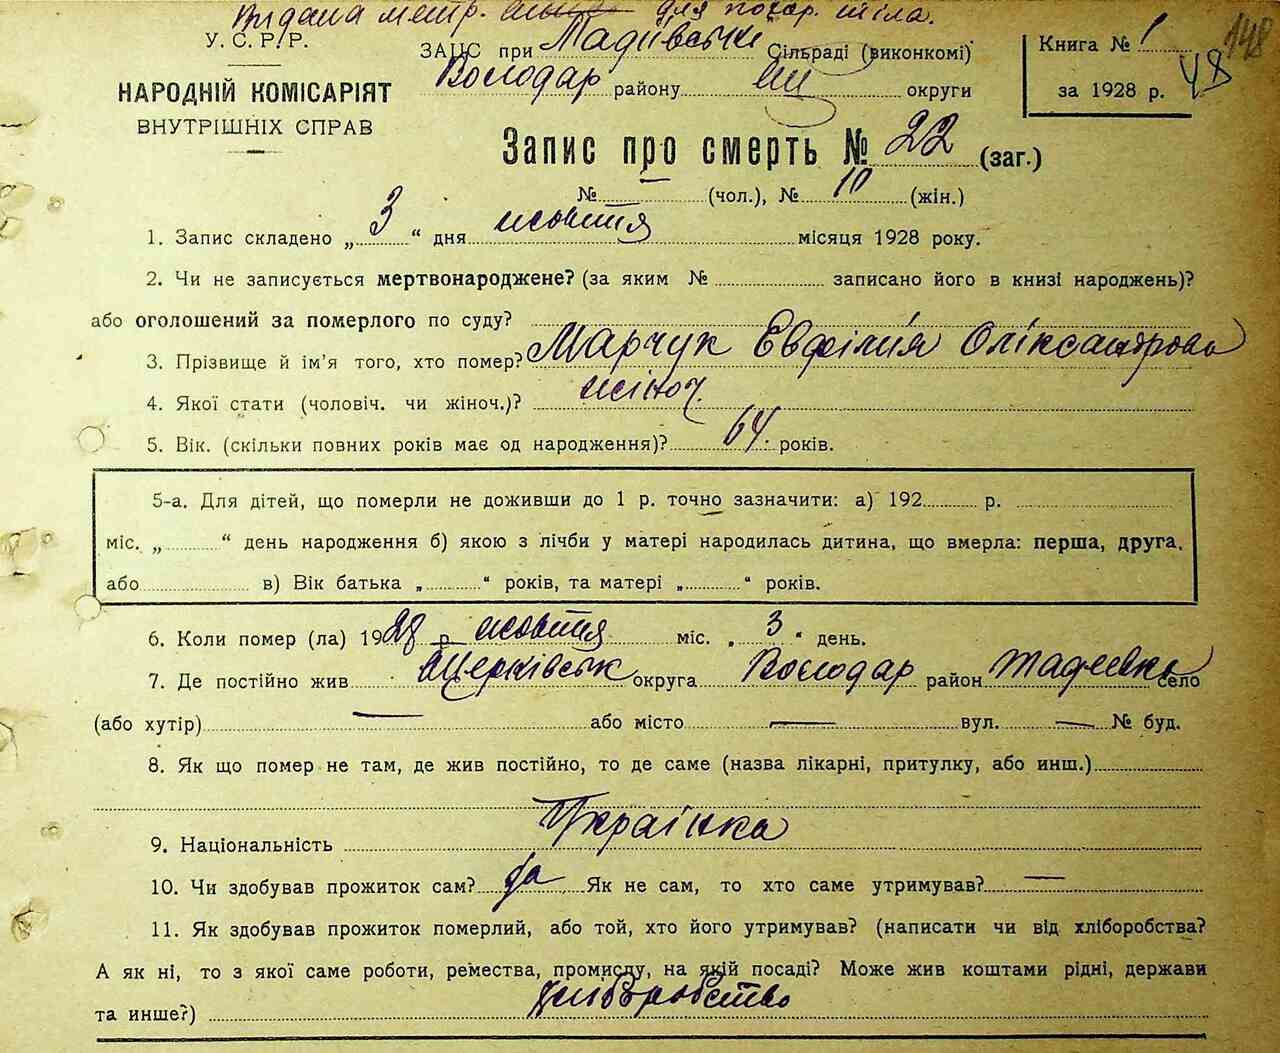 Видана метр. для похор. тіла.
У. С. Р. Р.
ЗАЦС при Тадіївські Сільраді (виконкомі)
Книга № 1
148
НАРОДНІЙ КОМІСАРІЯТ
Володар району округи
за 1928 р. 48
ВНУТРІШНІХ СПРАВ
Запис про смерть № 22 (заг.)
№ (чол.), № 10 (жін.)
1. Запис складено „ 3 “ дня жовтня місяця 1928 року.
2. Чи не записується мертвонароджене? (за яким № записано його в книзі народжень)?
або оголошений за померлого по суду?
3. Прізвище й ім’я того, хто помер? Марчук Евфілія Оліксандровна
4. Якої стати (чоловіч. чи жіноч.)? жіноч.
5. Вік. (скільки повних років має од народження)? 64 років.
5-а. Для дітей, що померли не доживши до 1 р. точно зазначити: а) 192 р.
міс. „ “ день народження б) якою з лічби у матері народилась дитина, що вмерла: перша, друга,
або в) Вік батька „ “ років, та матері „ “ років.
6. Коли помер (ла) 1928 р жовтня міс. „ 3 “ день.
7. Де постійно жив БЦерківськ округа Володар район Тадіевка село
(або хутір) — або місто — вул. — № буд.
8. Як що помер не там, де жив постійно, то де саме (назва лікарні, притулку, або инш.)
9. Національність Українка
10. Чи здобував прожиток сам? да Як не сам, то хто саме утримував? —
11. Як здобував прожиток померлий, або той, хто його утримував? (написати чи від хліборобства?
А як ні, то з якої саме роботи, ремества, промислу, на якій посаді? Може жив коштами рідні, держави
та инше?) хліборобство